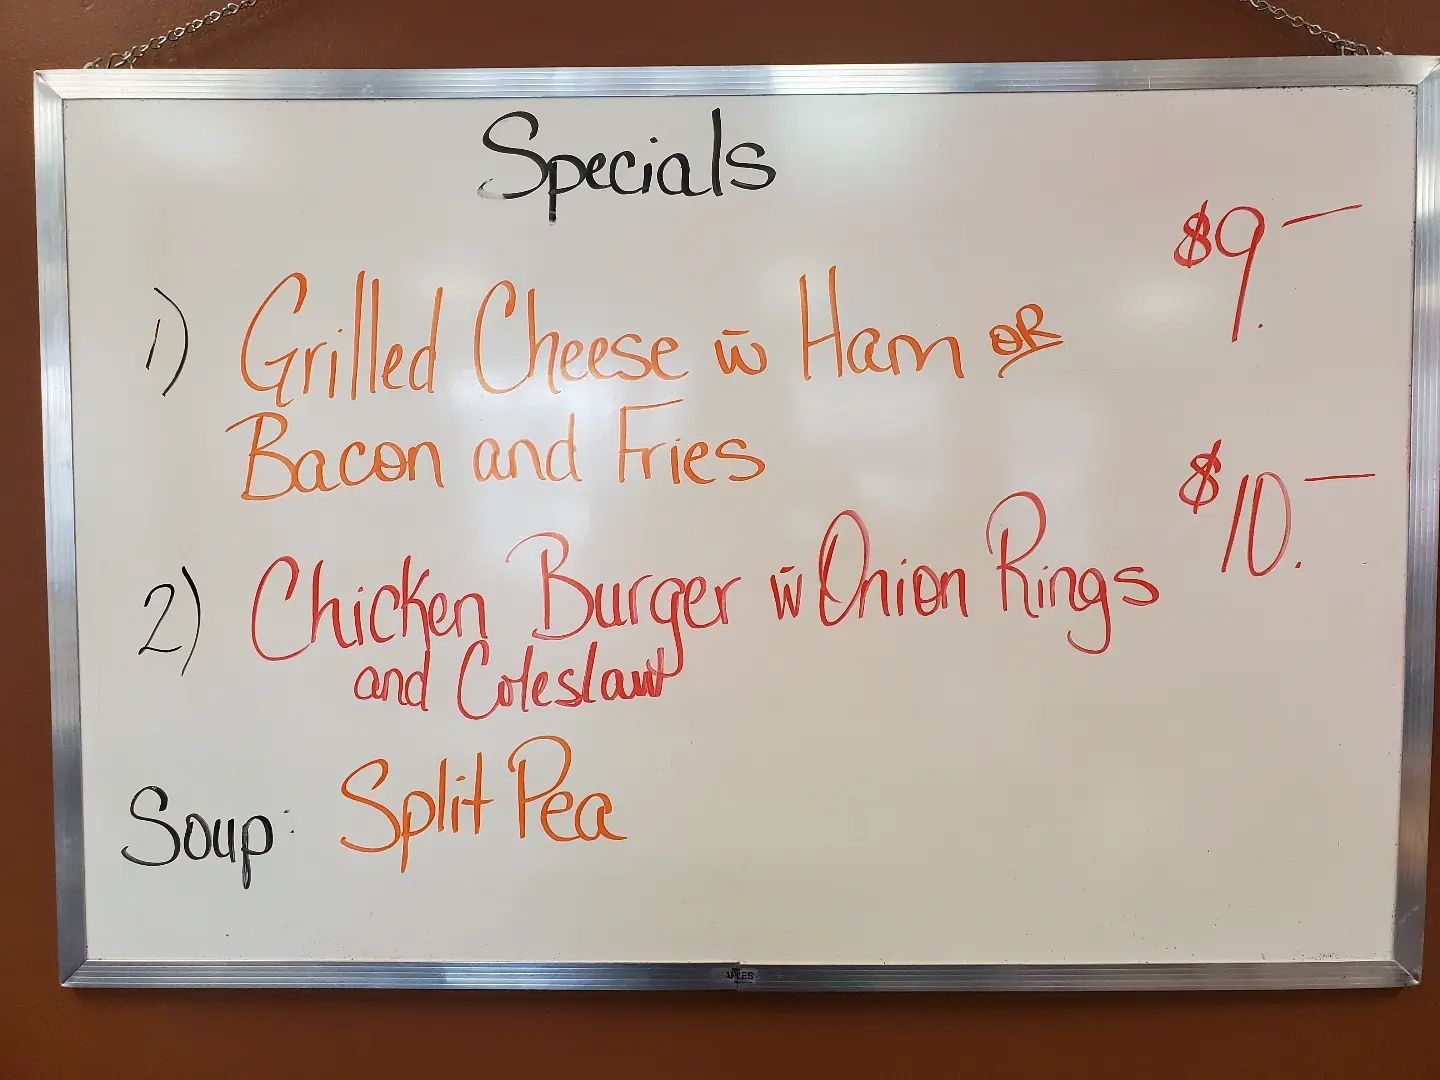 Specials
$9.—
1) Grilled Cheese w̄ Ham OR
Bacon and Fries
$10.—
2) Chicken Burger w̄ Onion Rings
and Coleslaw
Soup: Split Pea